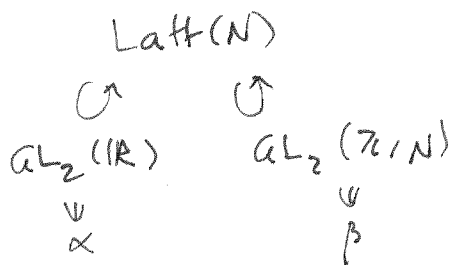 Latt(N)
↺ ↺
GL₂(ℝ) GL₂(ℤ/N)
ψ ψ
α β